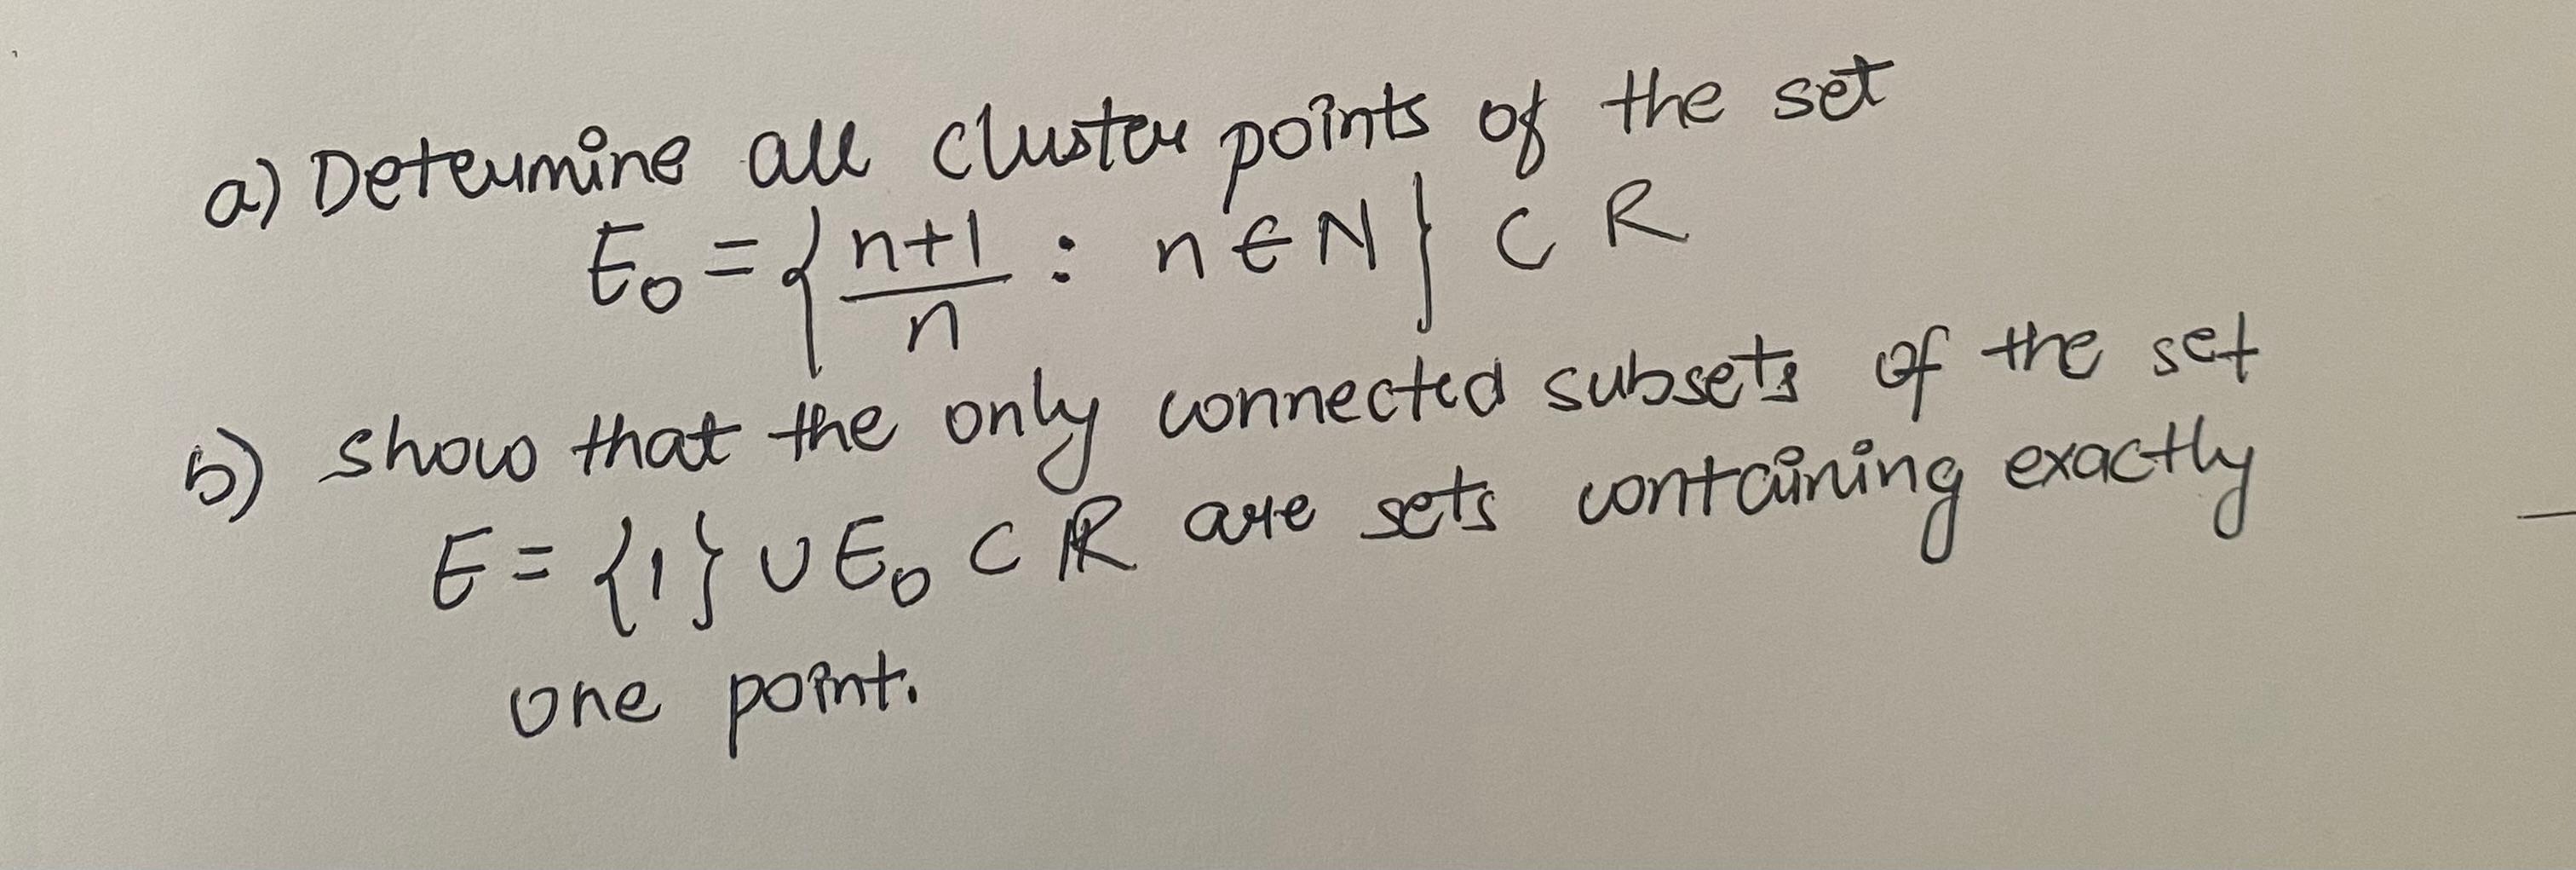 a) Determine all cluster points of the set
E₀ = { n+1/n : n ∈ N } ⊂ R
b) show that the only connected subsets of the set
E = {1} ∪ E₀ ⊂ ℝ are sets containing exactly
one point.